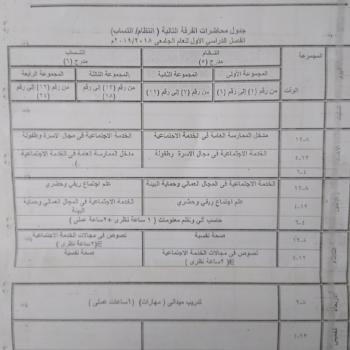 جدول محاضرات الفرقة الثانية ( انتظام/ انتساب)
الفصل الدراسى الأول للعام الجامعى ٢٠١٩/٢٠١٨م
المجموعة
انتظام
مدرج (٥)
انتساب
مدرج (٦)
المجموعة الأولى
المجموعة الثانية
المجموعة الثالثة
المجموعة الرابعة
الوقت
من رقم (١) إلى رقم
من رقم (٦) إلى رقم (١١)
من رقم (١٢) إلى رقم (١٨)
من رقم إلى رقم
١٢-٨
مدخل الممارسة العامة فى الخدمة الاجتماعية
الخدمة الاجتماعية فى مجال الاسرة وطفولة
٤-١٢
الخدمة الاجتماعية فى مجال الاسرة وطفولة
مدخل الممارسة العامة فى الخدمة الاجتماعية
٦-٤
١٢-٨
الخدمة الاجتماعية فى المجال العمالى وحماية البيئة
علم اجتماع ريفى وحضرى
٤-١٢
علم اجتماع ريفى وحضرى
الخدمة الاجتماعية فى المجال العمالى وحماية البيئة
٦-٤
حاسب الى ونظم معلومات ( ١ ساعة نظرى ٢٥ ساعة عملى )
١٢-٨
صحة نفسية
نصوص فى مجالات الخدمة الاجتماعية
٢ساعة نظرى )
٤-١٢
نصوص فى مجالات الخدمة الاجتماعية
٢ساعة نظرى )
صحة نفسية
الأربعاء
٢-٨
تدريب ميدانى ( مهارات) ( ٦ساعات عملى )
الخميس